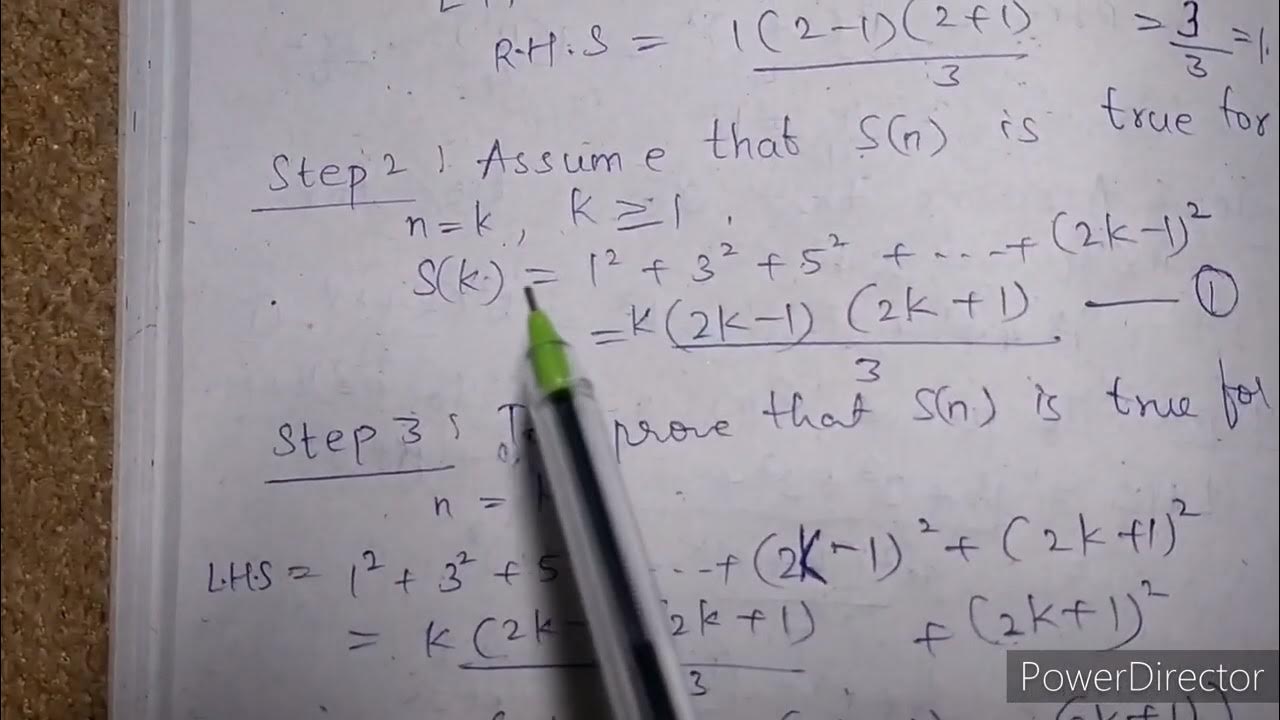 R.H.S = 1(2-1)(2+1) = 3 = 1.
3 3
Step 2 : Assume that S(n) is true for
n = k, k ≥ 1.
S(k) = 1² + 3² + 5² + ... + (2k-1)²
= k(2k-1) (2k+1) —— ①
3
Step 3 : prove that S(n) is true for
n =
L.H.S = 1² + 3² + 5 ... + (2k-1)² + (2k+1)²
= k(2k 2k+1) + (2k+1)²
3
PowerDirector